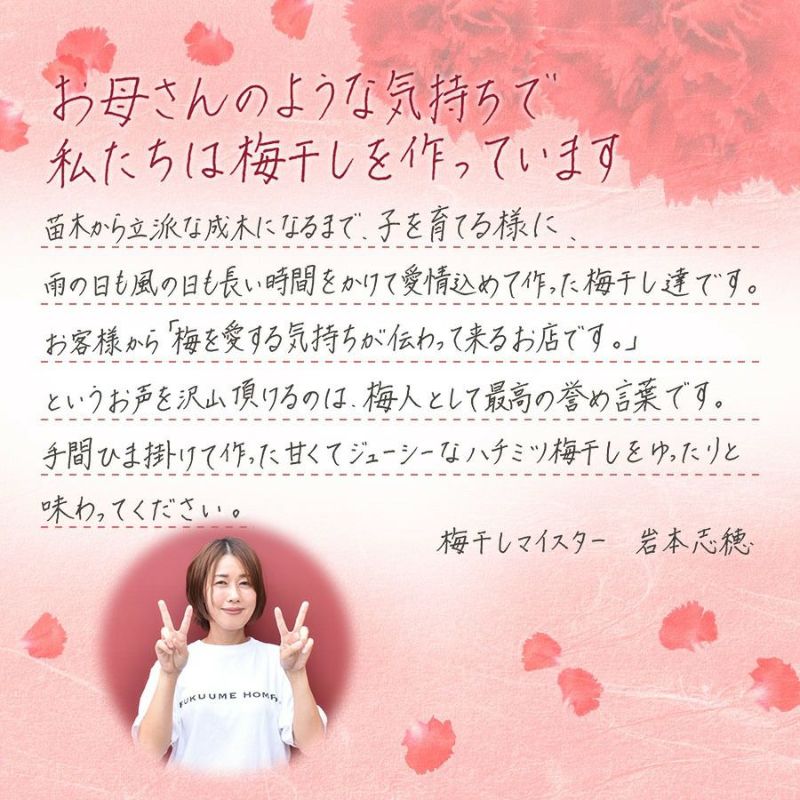 お母さんのような気持ちで
私たちは梅干しを作っています
苗木から立派な成木になるまで、子を育てる様に、
雨の日も風の日も長い時間をかけて愛情込めて作った梅干し達です。
お客様から「梅を愛する気持ちが伝わって来るお店です。」
というお声を沢山頂けるのは、梅人として最高の誉め言葉です。
手間ひま掛けて作った甘くてジューシーなハチミツ梅干しをゆったりと
味わってください。
梅干しマイスター 岩本志穂
FUKUUME HOMPO